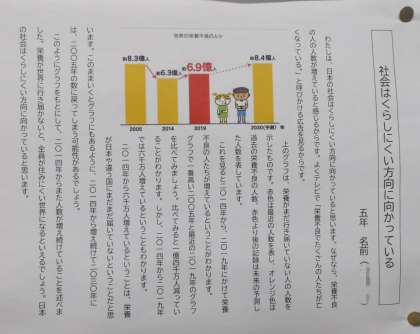 社会はくらしにくい方向に向かっている
五年 名前（　　　）
わたしは、日本の社会はくらしにくい方向に向かっていると思います。なぜなら、栄養不良
の人の人数が増えていると感じるからです。よくテレビで「栄養不良でたくさんの人たちが亡
くなっている。」と呼びかける広告を見るからです。
世界の栄養不良の人口
約8.3億人
約6.3億人
約6.9億人
約8.4億人
2005
2014
2019
2030(予測) 年
上のグラフは、栄養がまだ行き届いていない人の人数を
示したものです。赤色は最近の人数を表し、オレンジ色は
過去の栄養不良の人数、赤色より後の記録は未来の予測し
た人数を表しています。
これを見ると二〇一四年から、二〇一九年にかけて栄養
不良の人たちが増えているということがわかります。
グラフで一番高い二〇〇五年と最近の二〇一九年のグラフ
を比べてみましょう。比べてみると一億四千万人減ってい
ることがわかります。しかし、二〇一四年から二〇一九年
では六千万人増えているということもわかります。
二〇一四年から六千万人増えているということは、栄養
が日本や違う国にまだまだ届いていないということだと思
います。このままいくとグラフにもあるように、二〇一四年から増え続けて二〇三〇年に
は、二〇〇五年の数に戻ってしまう可能性があるでしょう。
このようにグラフをもとにして、二〇一四年からまた人数が増え続けていることを述べま
した。栄養が世界に行き届かないと、全員が住みにくい世界になるといえるでしょう。日本
の社会はくらしにくい方向に向かっていると思います。